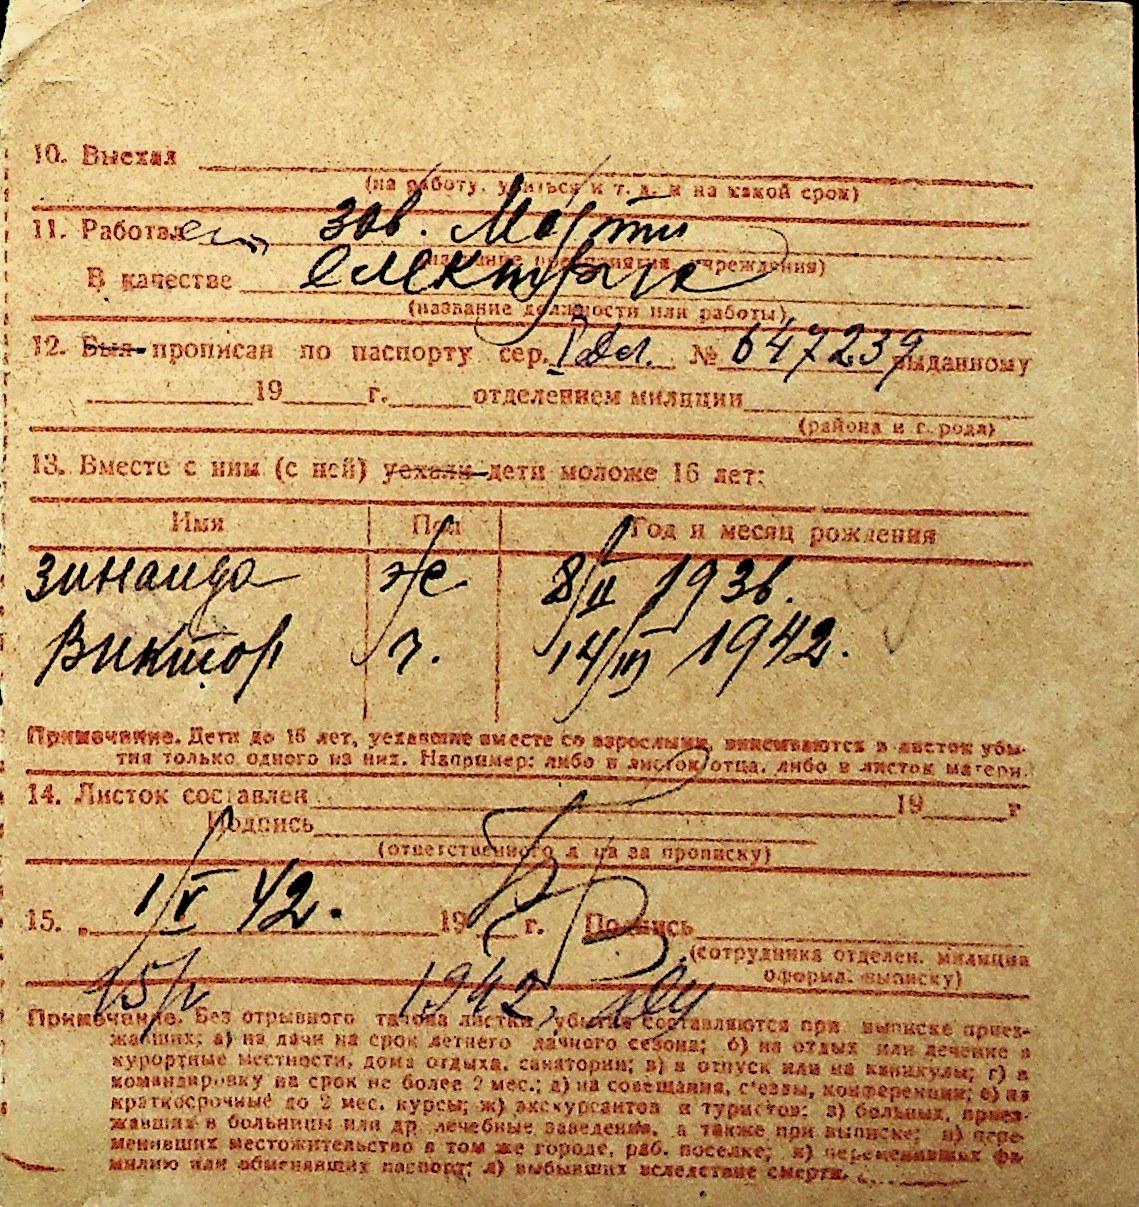 10. Выехал
(на работу, учиться и т. д. и на какой срок)
11. Работает зав. Марти
(название предприятия, учреждения)
В качестве електрик
(название должности или работы)
12. Был прописан по паспорту сер. № 647239 выданному
19 г. отделением милиции
(района и города)
13. Вместе с ним (с ней) уехали дети моложе 16 лет:
Имя Пол Год и месяц рождения
Зинаида ж. 8/II 1936.
Виктор 14/III 1942.
Примечание. Дети до 16 лет, уехавшие вместе со взрослыми, вписываются в листок убы-
тия только одного из них. Например: либо в листок отца, либо в листок матери.
14. Листок составлен 19 г
Подпись
(ответственного лица за прописку)
15. „ 1/V 42. 19 г. Подпись
(сотрудника отделен. милиции
оформл. выписку)
1942,
Примечание. Без отрывного талона листки убытия составляются при выписке приез-
жавших; а) на дачи на срок летнего дачного сезона; б) на отдых или лечение в
курортные местности, дома отдыха, санатории; в) в отпуск или на каникулы; г) в
командировку на срок не более 2 мес.; д) на совещания, с'езды, конференции; е) на
краткосрочные до 2 мес. курсы; ж) экскурсантов и туристов; з) больных, приез-
жавших в больницы или др. лечебные заведения, а также при выписке; и) пере-
менивших местожительство в том же городе, раб. поселке; к) переменивших фа-
милию или обменявших паспорт; л) выбывших вследствие смерти.